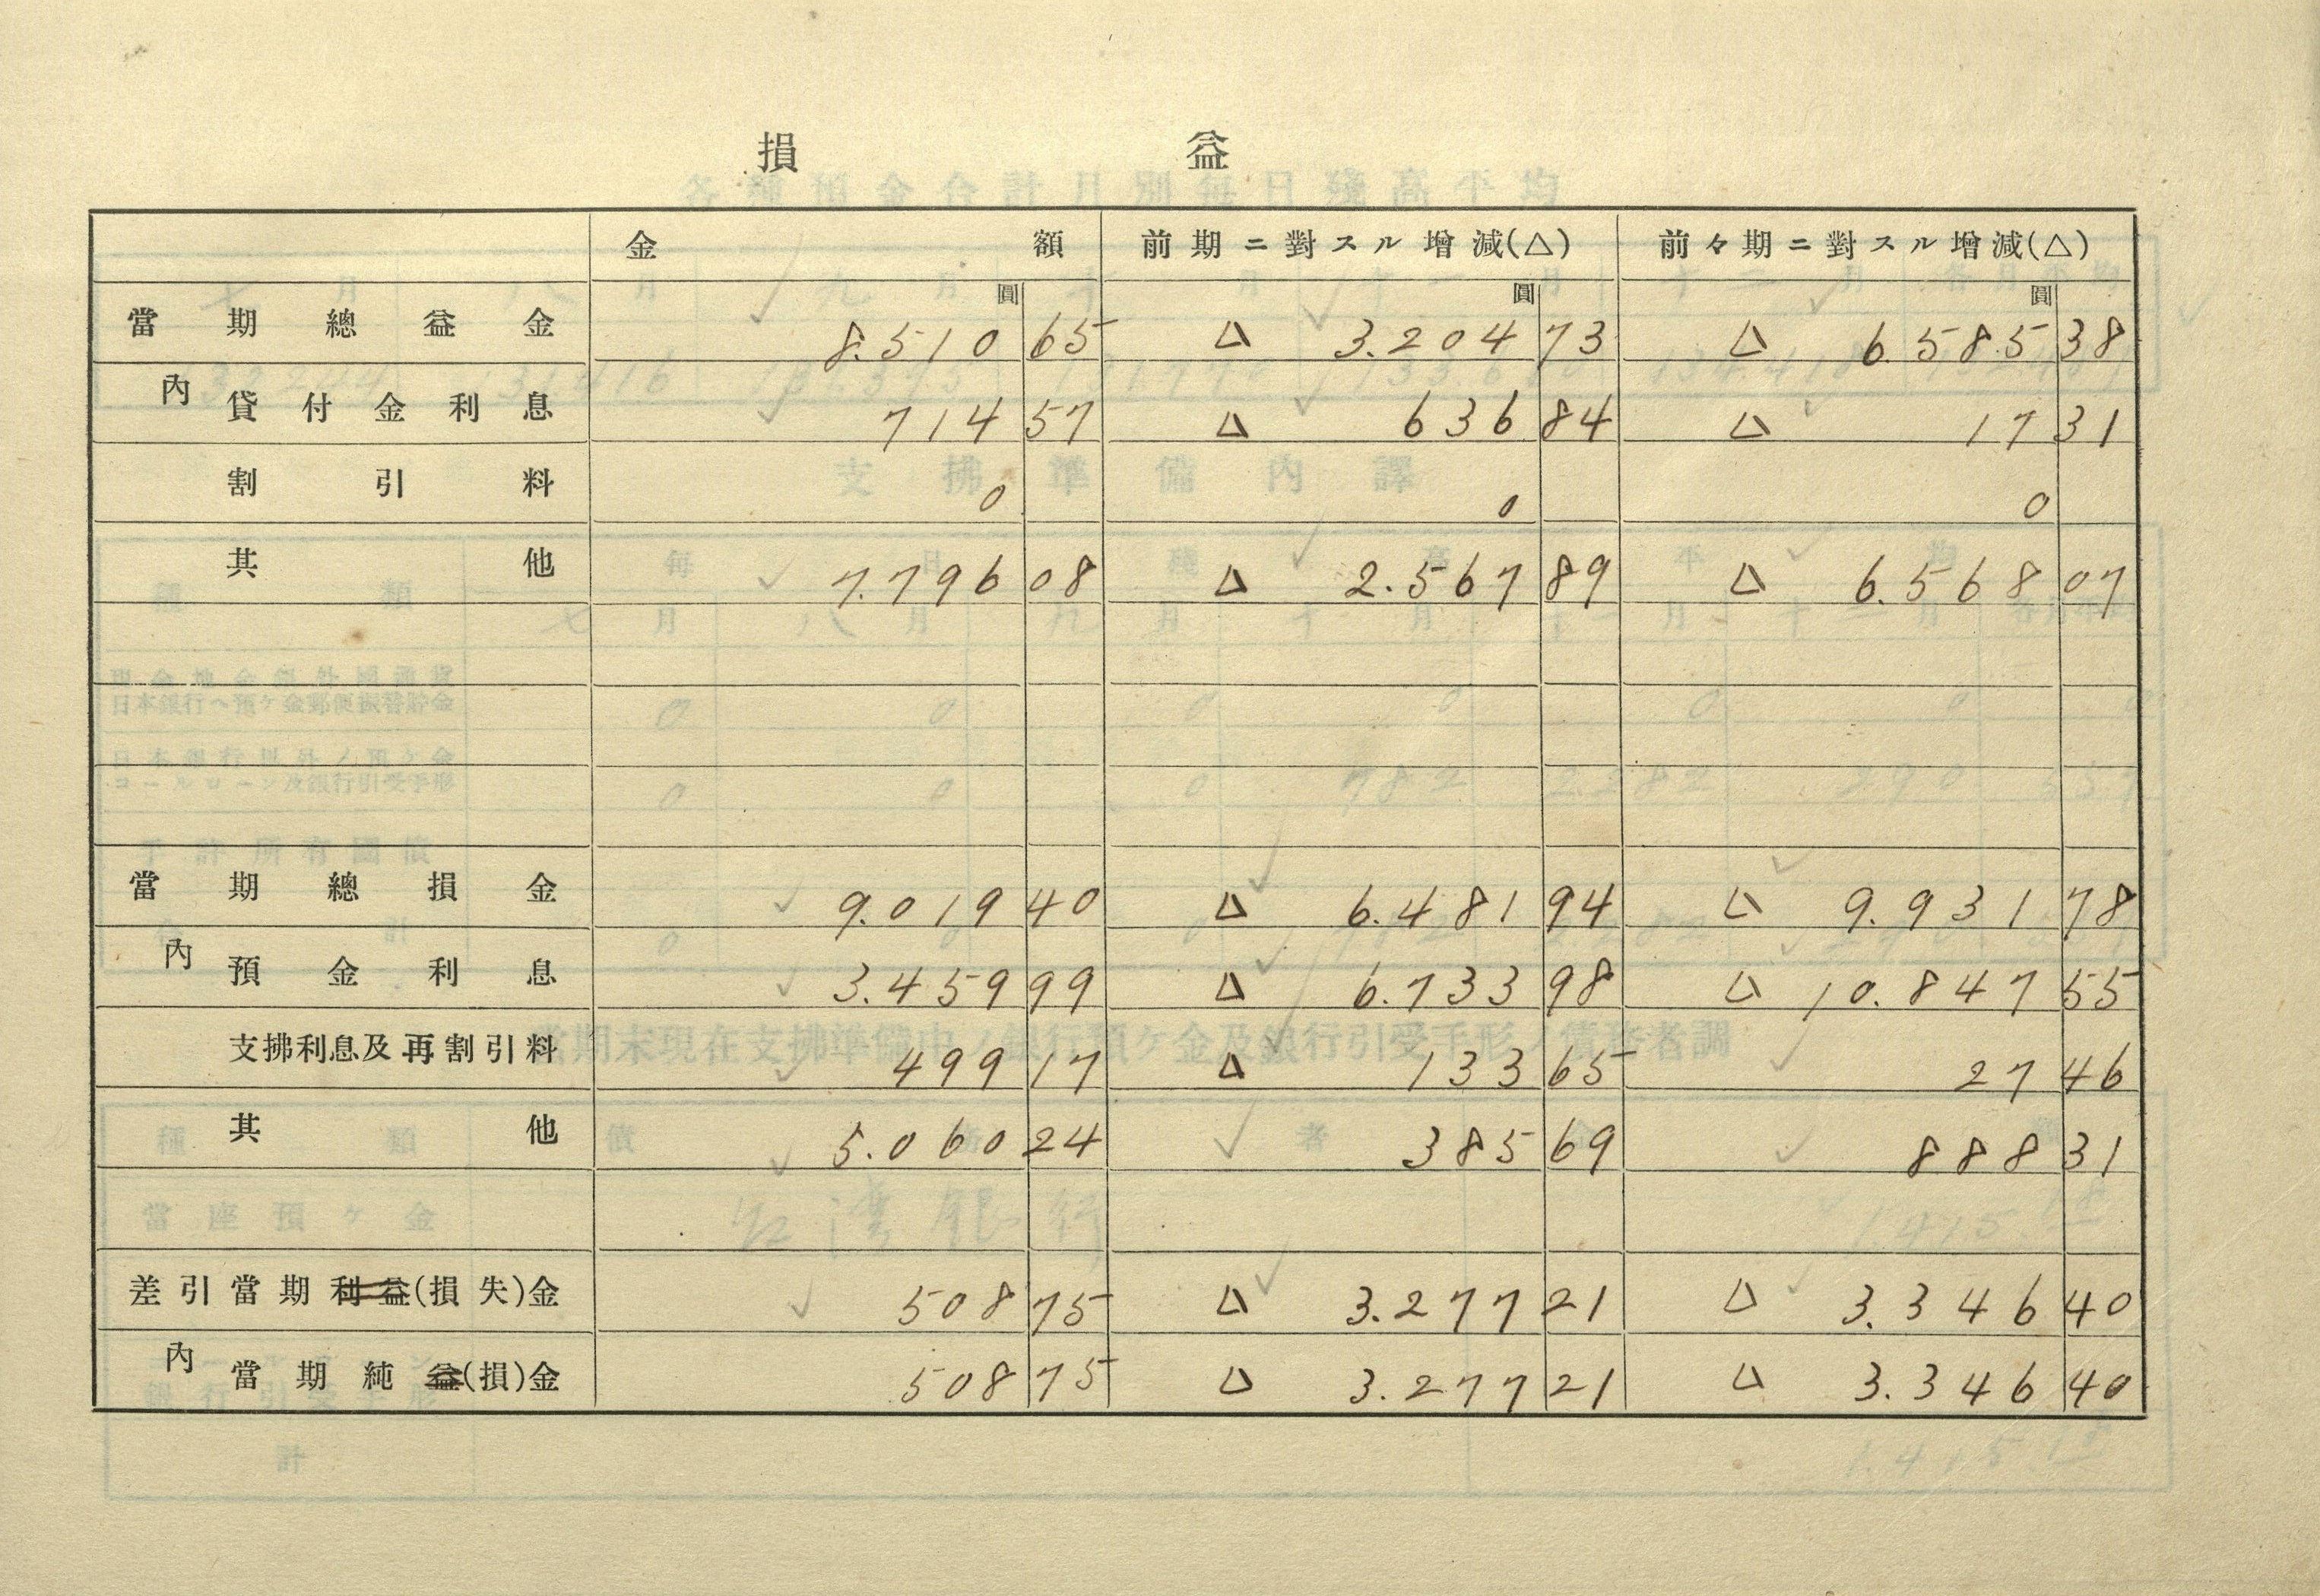 損益
金額 前期ニ對スル增減(△) 前々期ニ對スル增減(△)
圓 圓 圓
當期總益金 8.510 65 △ 3.204 73 △ 6.585 38
內 貸付金利息 714 57 △ 636 84 △ 17 31
割引料 0 0 0
其他 7.796 08 △ 2.567 89 △ 6.568 07
當期總損金 9.019 40 △ 6.481 94 △ 9.931 78
內 預金利息 3.459 99 △ 6.733 98 △ 10.847 55
支拂利息及再割引料 499 17 △ 133 65 27 46
其他 5.060 24 385 69 888 31
差引當期利益(損失)金 508 75 △ 3.277 21 △ 3.346 40
內 當期純益(損)金 508 75 △ 3.277 21 △ 3.346 40